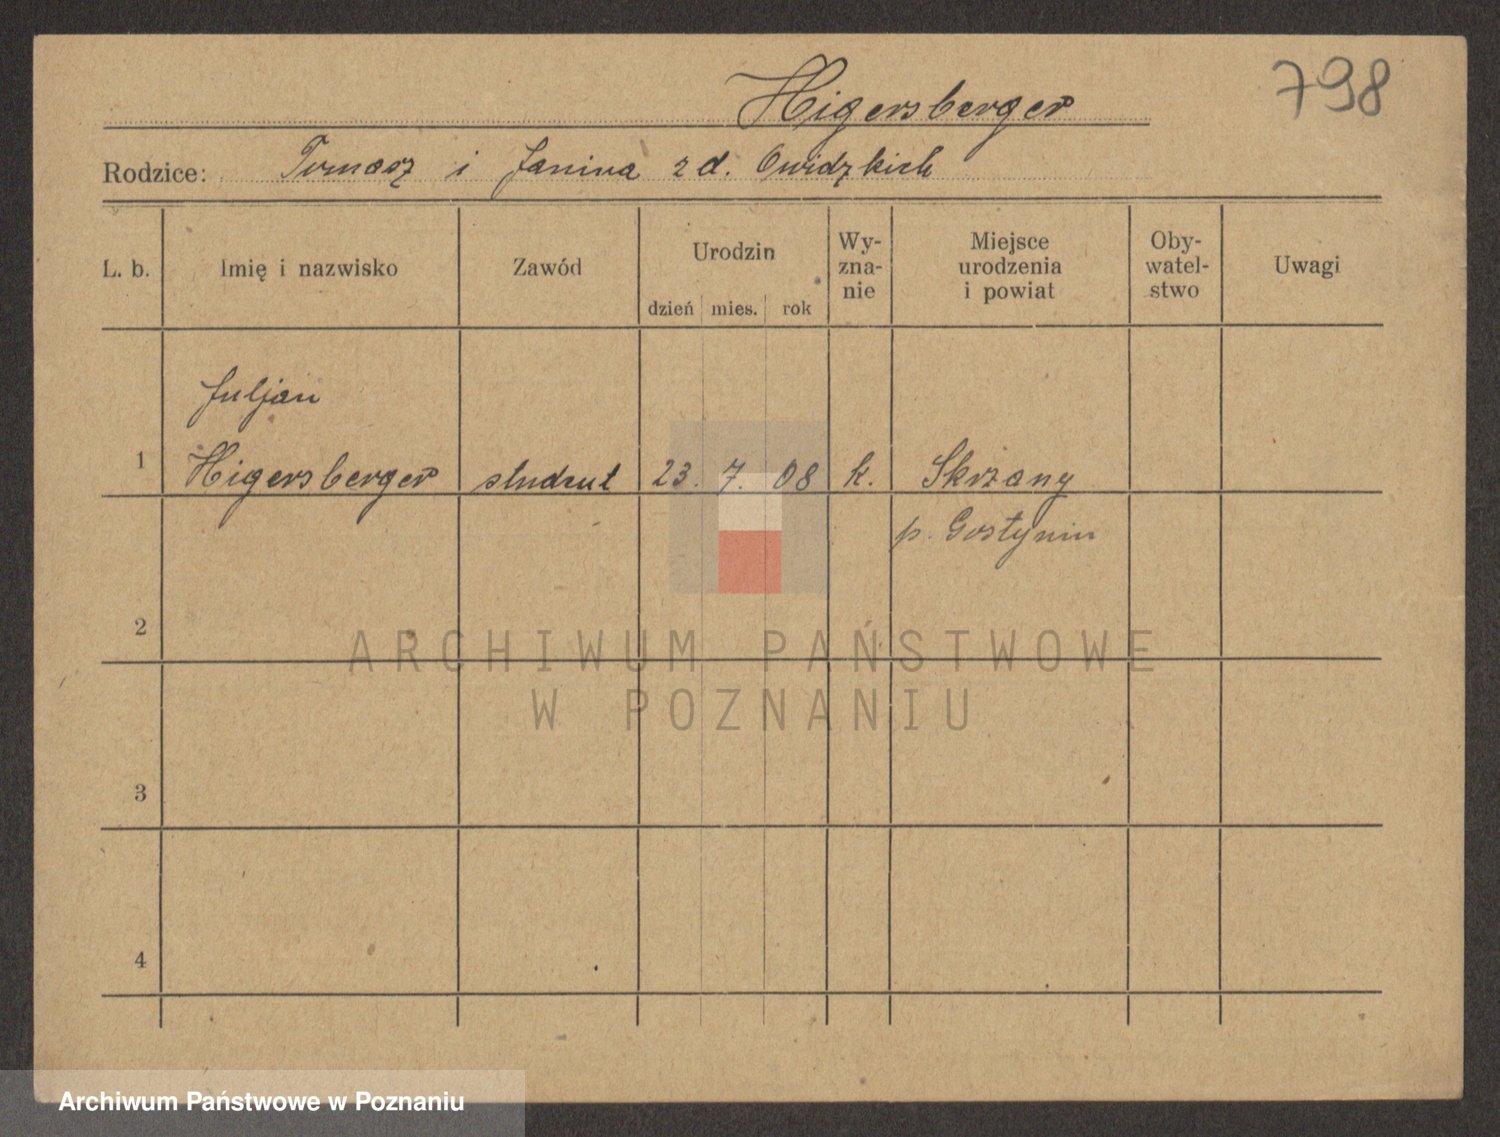 Higersberger
798
Rodzice: Tomasz i Janina z d. Owidzkich
L. b. Imię i nazwisko Zawód Urodzin dzień mies. rok Wy-zna-nie Miejsce urodzenia i powiat Oby-watel-stwo Uwagi
Juljan
1 Higersberger student 23. 7. 08 k. Skrzany
p. Gostynin
2
ARCHIWUM PAŃSTWOWE
W POZNANIU
3
4
Archiwum Państwowe w Poznaniu